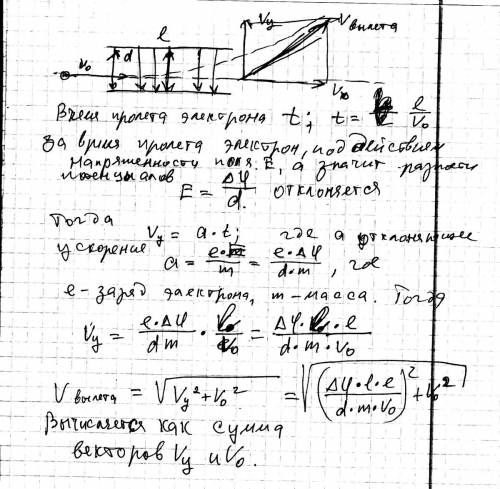 l
V₀ d Vy V вылета
V₀
Время пролета электрона t; t = l/V₀
За время пролета электрон, под действием
напряженности поля E, а значит разности
потенциалов E = Δφ/d отклоняется
Тогда
Vy = a·t; где a отклоняющее
ускорение a = e·E/m = e·Δφ/d·m, где
e - заряд электрона, m - масса. Тогда
Vy = e·Δφ/dm · l/V₀ = Δφ·l·e/d·m·V₀
V вылета = √(Vy² + V₀²) = √((Δφ·l·e/d·m·V₀)² + V₀²)
Вычисляется как сумма
векторов Vy и V₀.